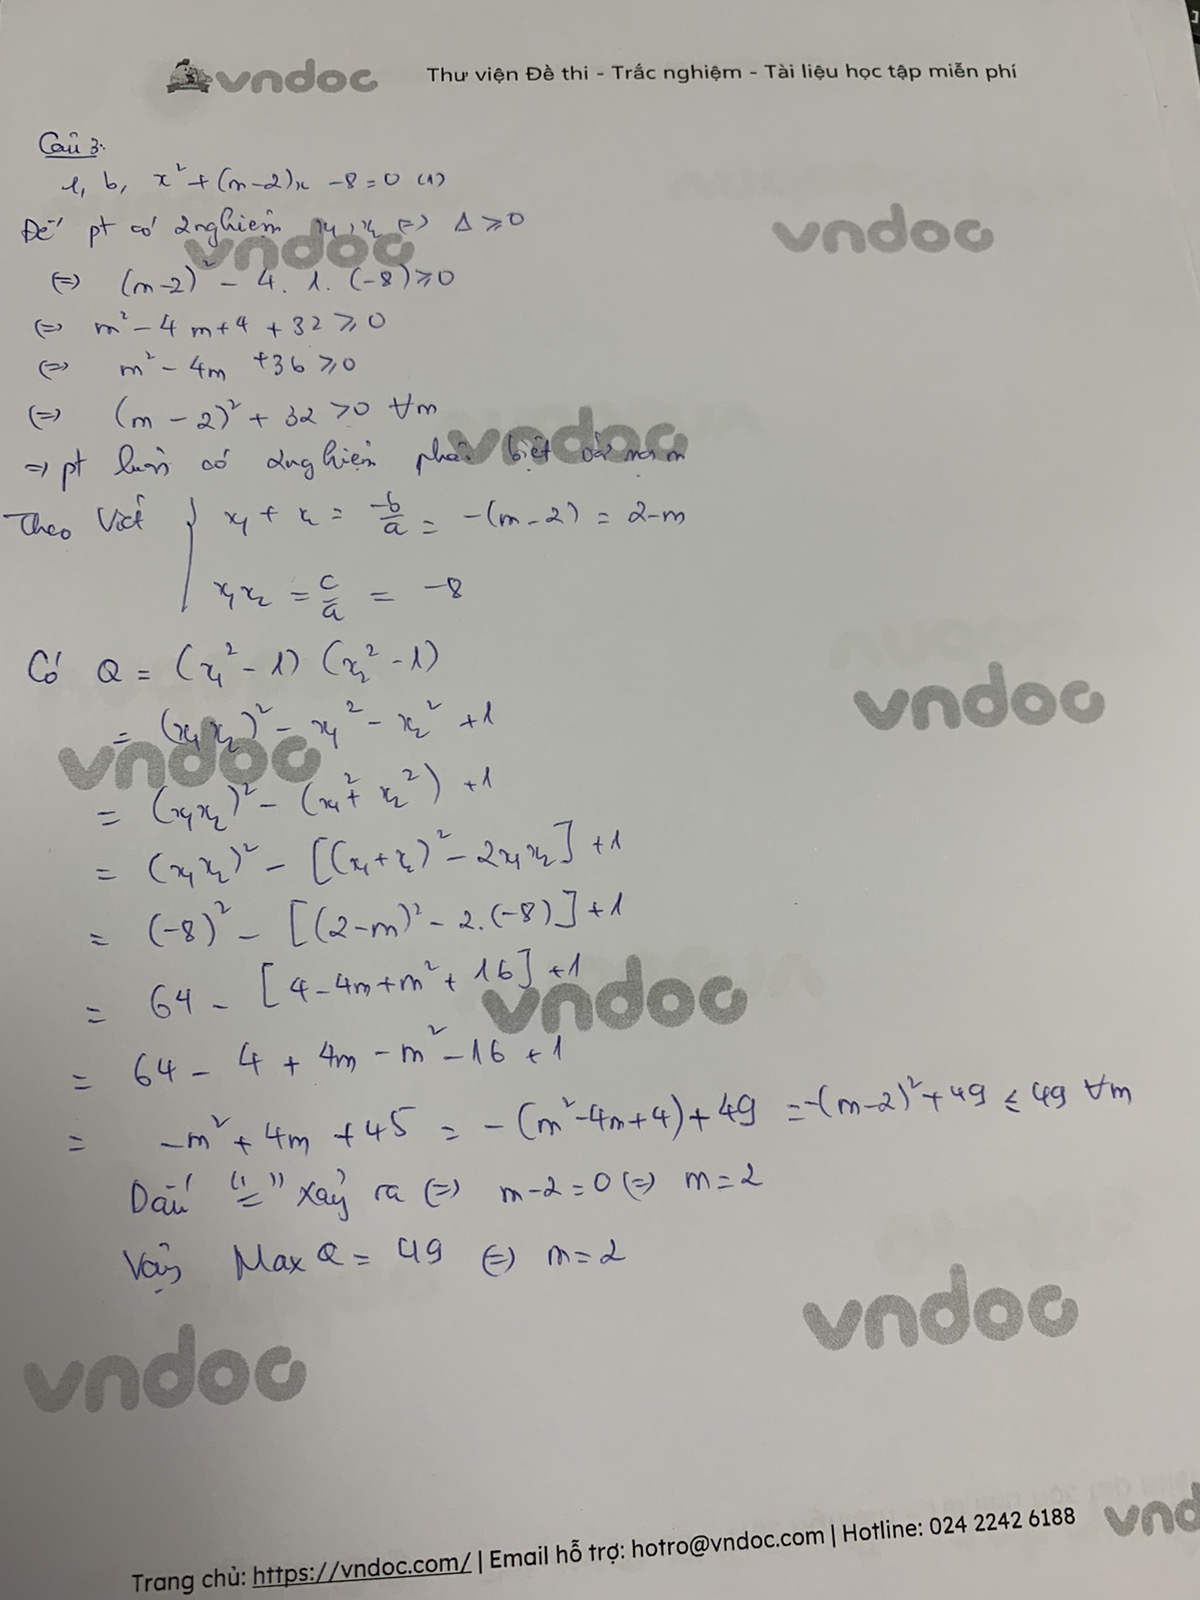 vndoc Thư viện Đề thi - Trắc nghiệm - Tài liệu học tập miễn phí
Câu 3:
1, b, x² + (m-2)x - 8 = 0 (1)
Để pt có 2 nghiệm x₁, x₂ (=) Δ ≥ 0
vndoc vndoc
(=) (m-2)² - 4. 1. (-8) ≥ 0
(=) m² - 4m + 4 + 32 ≥ 0
(=) m² - 4m + 36 ≥ 0
(=) (m - 2)² + 32 > 0 ∀m
vndoc
=> pt luôn có 2 nghiệm phân biệt với mọi m
Theo Viét { x₁ + x₂ = -b/a = -(m-2) = 2-m
x₁x₂ = c/a = -8
Có Q = (x₁² - 1) (x₂² - 1)
vndoc
= (x₁x₂)² - x₁² - x₂² + 1
vndoc
= (x₁x₂)² - (x₁² + x₂²) + 1
= (x₁x₂)² - [(x₁+x₂)² - 2x₁x₂] + 1
= (-8)² - [(2-m)² - 2.(-8)] + 1
= 64 - [4 - 4m + m² + 16] + 1
vndoc
= 64 - 4 + 4m - m² - 16 + 1
= -m² + 4m + 45 = -(m² - 4m + 4) + 49 = -(m-2)² + 49 ≤ 49 ∀m
Dấu "=" xảy ra (=) m-2 = 0 (=) m = 2
Vậy Max Q = 49 (=) m = 2
vndoc
vndoc
vnd
Trang chủ: https://vndoc.com/ | Email hỗ trợ: hotro@vndoc.com | Hotline: 024 2242 6188